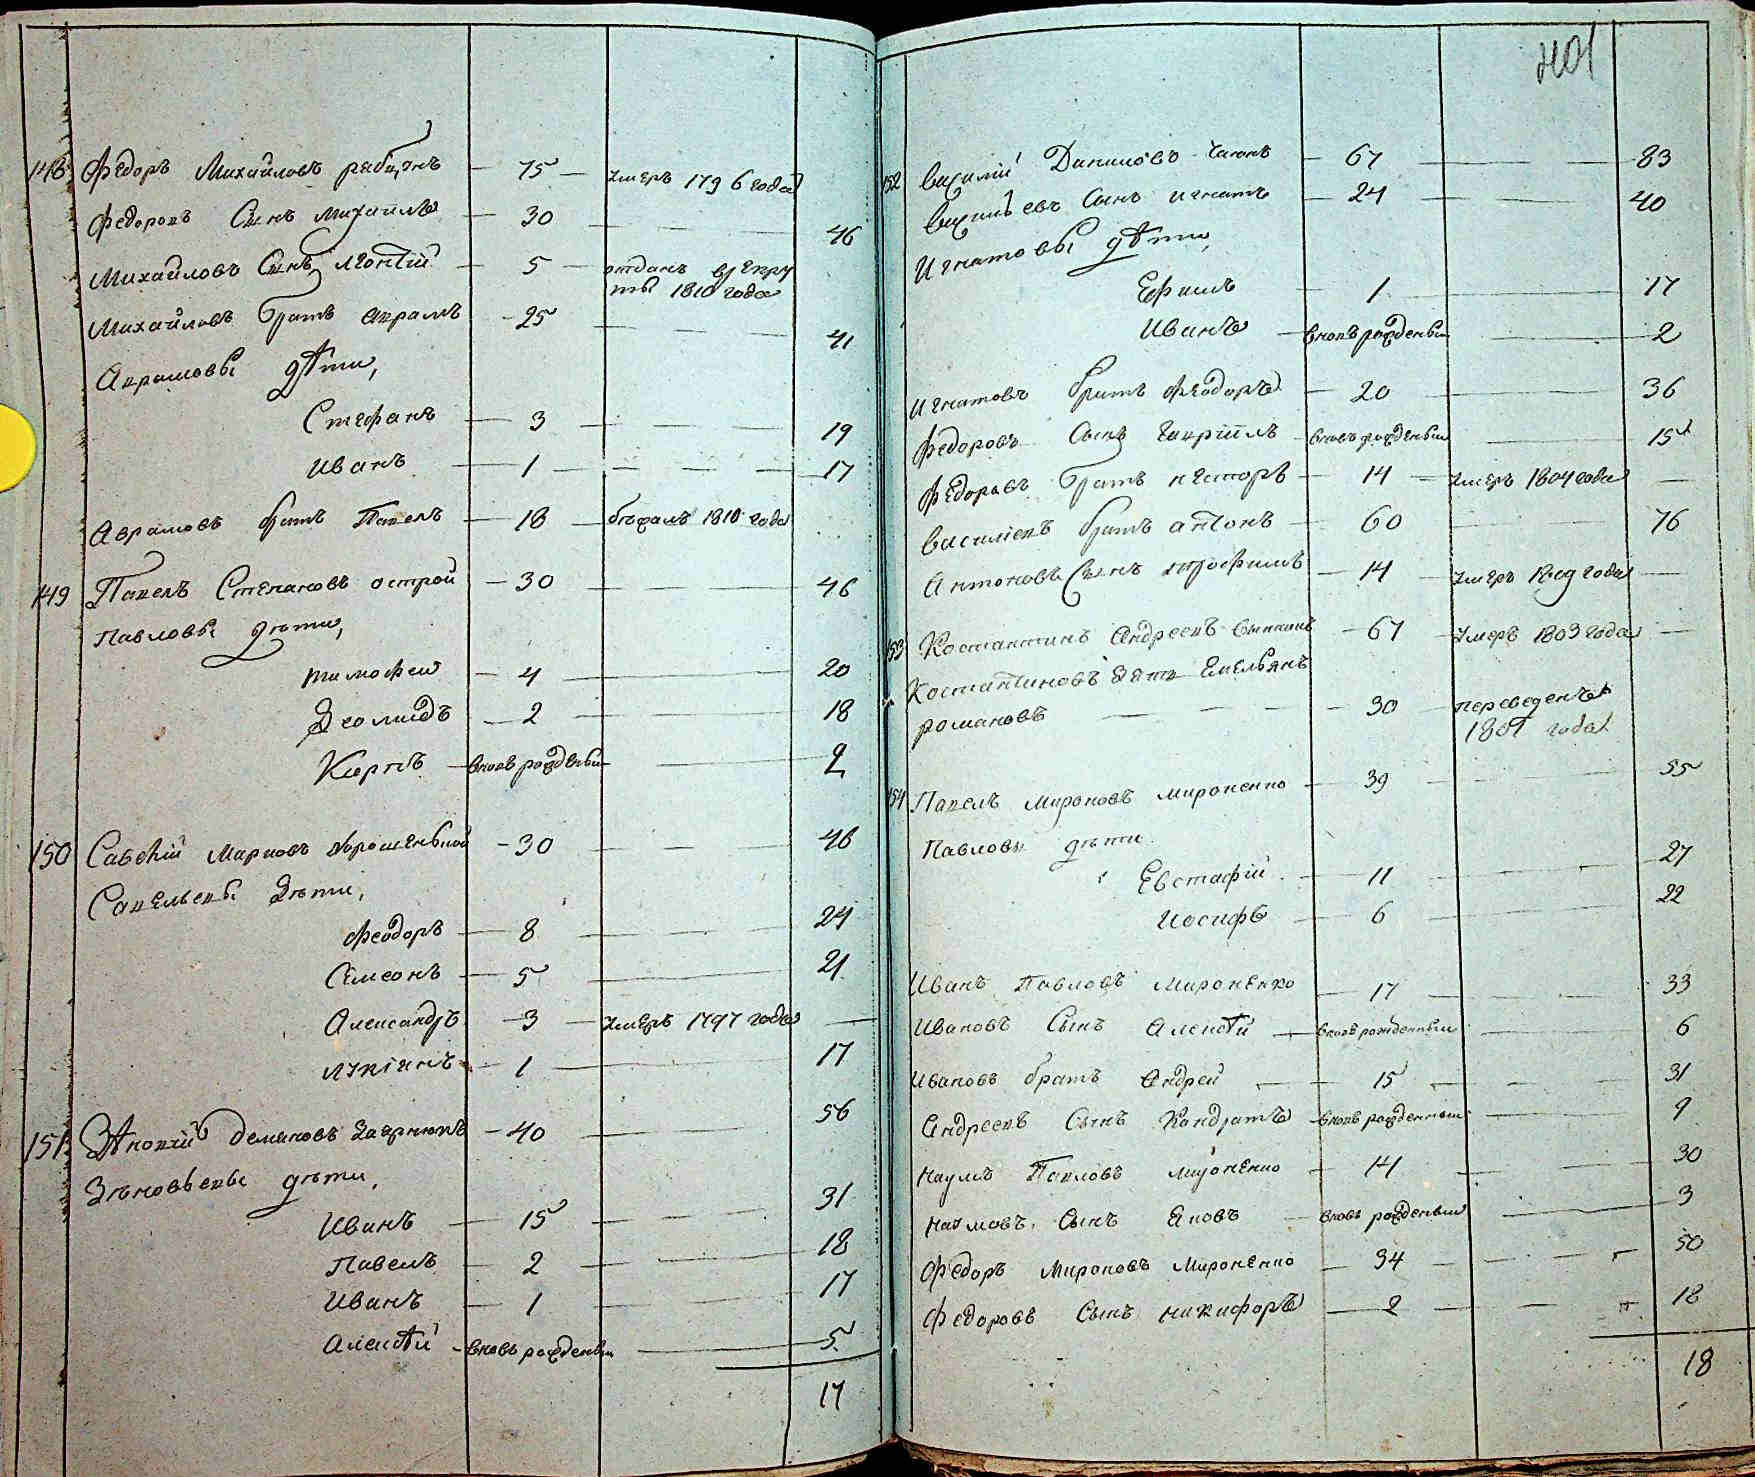 148 Федоръ Михайловъ рабцунъ — 75 — умеръ 1796 года
Федоровъ Сынъ Михаилъ — 30 — 46
Михайловъ Сынъ леонтій — 5 — отданъ в рекру
ты 1810 года
Михайловъ братъ аврамъ — 25 — 41
Аврамовы дѣти,
Стефанъ — 3 — 19
Иванъ — 1 — 17
Аврамовъ братъ Павелъ — 18 — бѣжалъ 1810 года
149 Павелъ Степановъ острой — 30 — 46
Павловы дѣти,
тимофей — 4 — 20
Деомидъ — 2 — 18
Карпъ — вновь рожденый — 2
150 Савелій Марковъ хорошенькой — 30 — 46
Савельевы дѣти,
Феодоръ — 8 — 24
Симеонъ — 5 — 21
Александръ — 3 — умеръ 1797 года —
лукіянъ — 1 — 17
151 Зѣновій Демяновъ — 40 — 56
Зѣновьевы дѣти,
Иванъ — 15 — 31
Павелъ — 2 — 18
Иванъ — 1 — 17
Алексѣй — вновь рожденый — 5
17
401
152 Василій Даниловъ — 67 — 83
Васильевъ Сынъ игнатъ — 24 — 40
Игнатовы дѣти,
Ефимъ — 1 — 17
Иванъ — вновь рожденый — 2
Игнатовъ братъ Феодоръ — 20 — 36
Федоровъ Сынъ Гавріилъ — вновь рожденый — 15
Федоровъ братъ несторъ — 14 — умеръ 1804 года —
Василіевъ братъ антонъ — 60 — 76
Антоновъ Сынъ трофимъ — 14 — умеръ 1809 года —
153 Костантинъ Андреевъ — 67 — умеръ 1803 года —
Костантиновъ зять Емельянъ
романовъ — 30 — переведенъ
1801 года
154 Павелъ мироновъ мироненко — 39 — 55
Павловы дѣти
Евстафій — 11 — 27
Иосифъ — 6 — 22
Иванъ Павловъ Мироненко — 17 — 33
Ивановъ Сынъ Алексѣй — вновь рожденный — 6
Ивановъ братъ Андрей — 15 — 31
Андреевъ Сынъ Кондратъ — вновь рожденный — 9
Наумъ Павловъ мироненко — 14 — 30
Наумовъ Сынъ Яковъ — вновь рожденый — 3
Федоръ Мироновъ Мироненко — 34 — 50
Федоровъ Сынъ никифоръ — 2 — 18
18